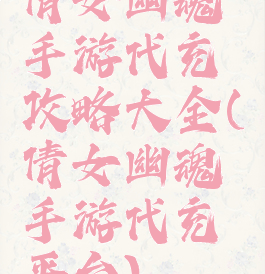 倩女幽魂
手游代充
攻略大全(
倩女幽魂
手游代充
平台)